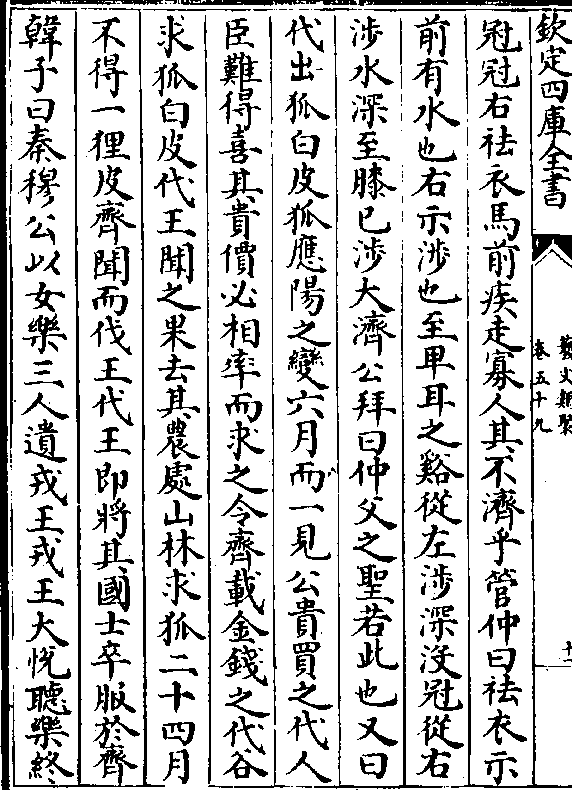 欽定四庫全書
藝文類聚
卷五十九
十一
冠冠右袪衣馬前疾走寡人其不濟乎管仲曰袪衣示
前有水也右示涉也至卑耳之谿從左涉深沒冠從右
涉水深至膝已涉大濟公拜曰仲父之聖若此也又曰
代出狐白皮狐應陽之變六月而一見公貴買之代人
臣難得喜其貴價必相率而求之令齊載金錢之代谷
求狐白皮代王聞之果去其農處山林求狐二十四月
不得一狸皮齊聞而伐王代王即將其國士卒服於齊
韓子曰秦穆公以女樂三人遺戎王戎王大悅聽樂終